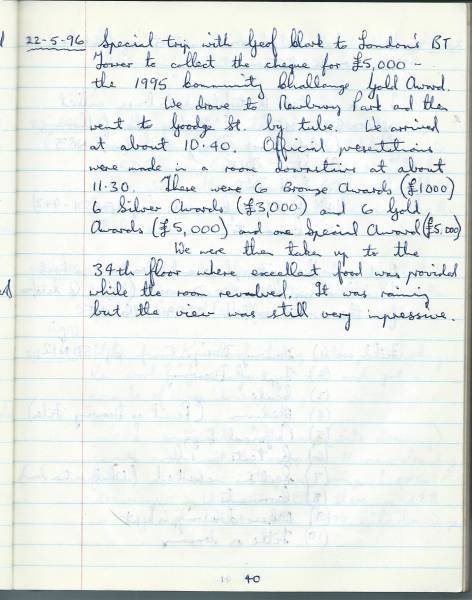 22-5-96 Special trip with Geof Clark to London's BT
Tower to collect the cheque for £5,000 -
the 1995 Community Challenge Gold Award.
We drove to Newbury Park and then
went to Goodge St. by tube. We arrived
at about 10.40. Official presentations
were made in a room downstairs at about
11.30. There were 6 Bronze Awards (£1000)
6 Silver Awards (£3,000) and 6 Gold
Awards (£5,000) and one Special Award (£5,000)
We were then taken up to the
34th floor where excellent food was provided
while the room revolved. It was raining
but the view was still very impressive.
40